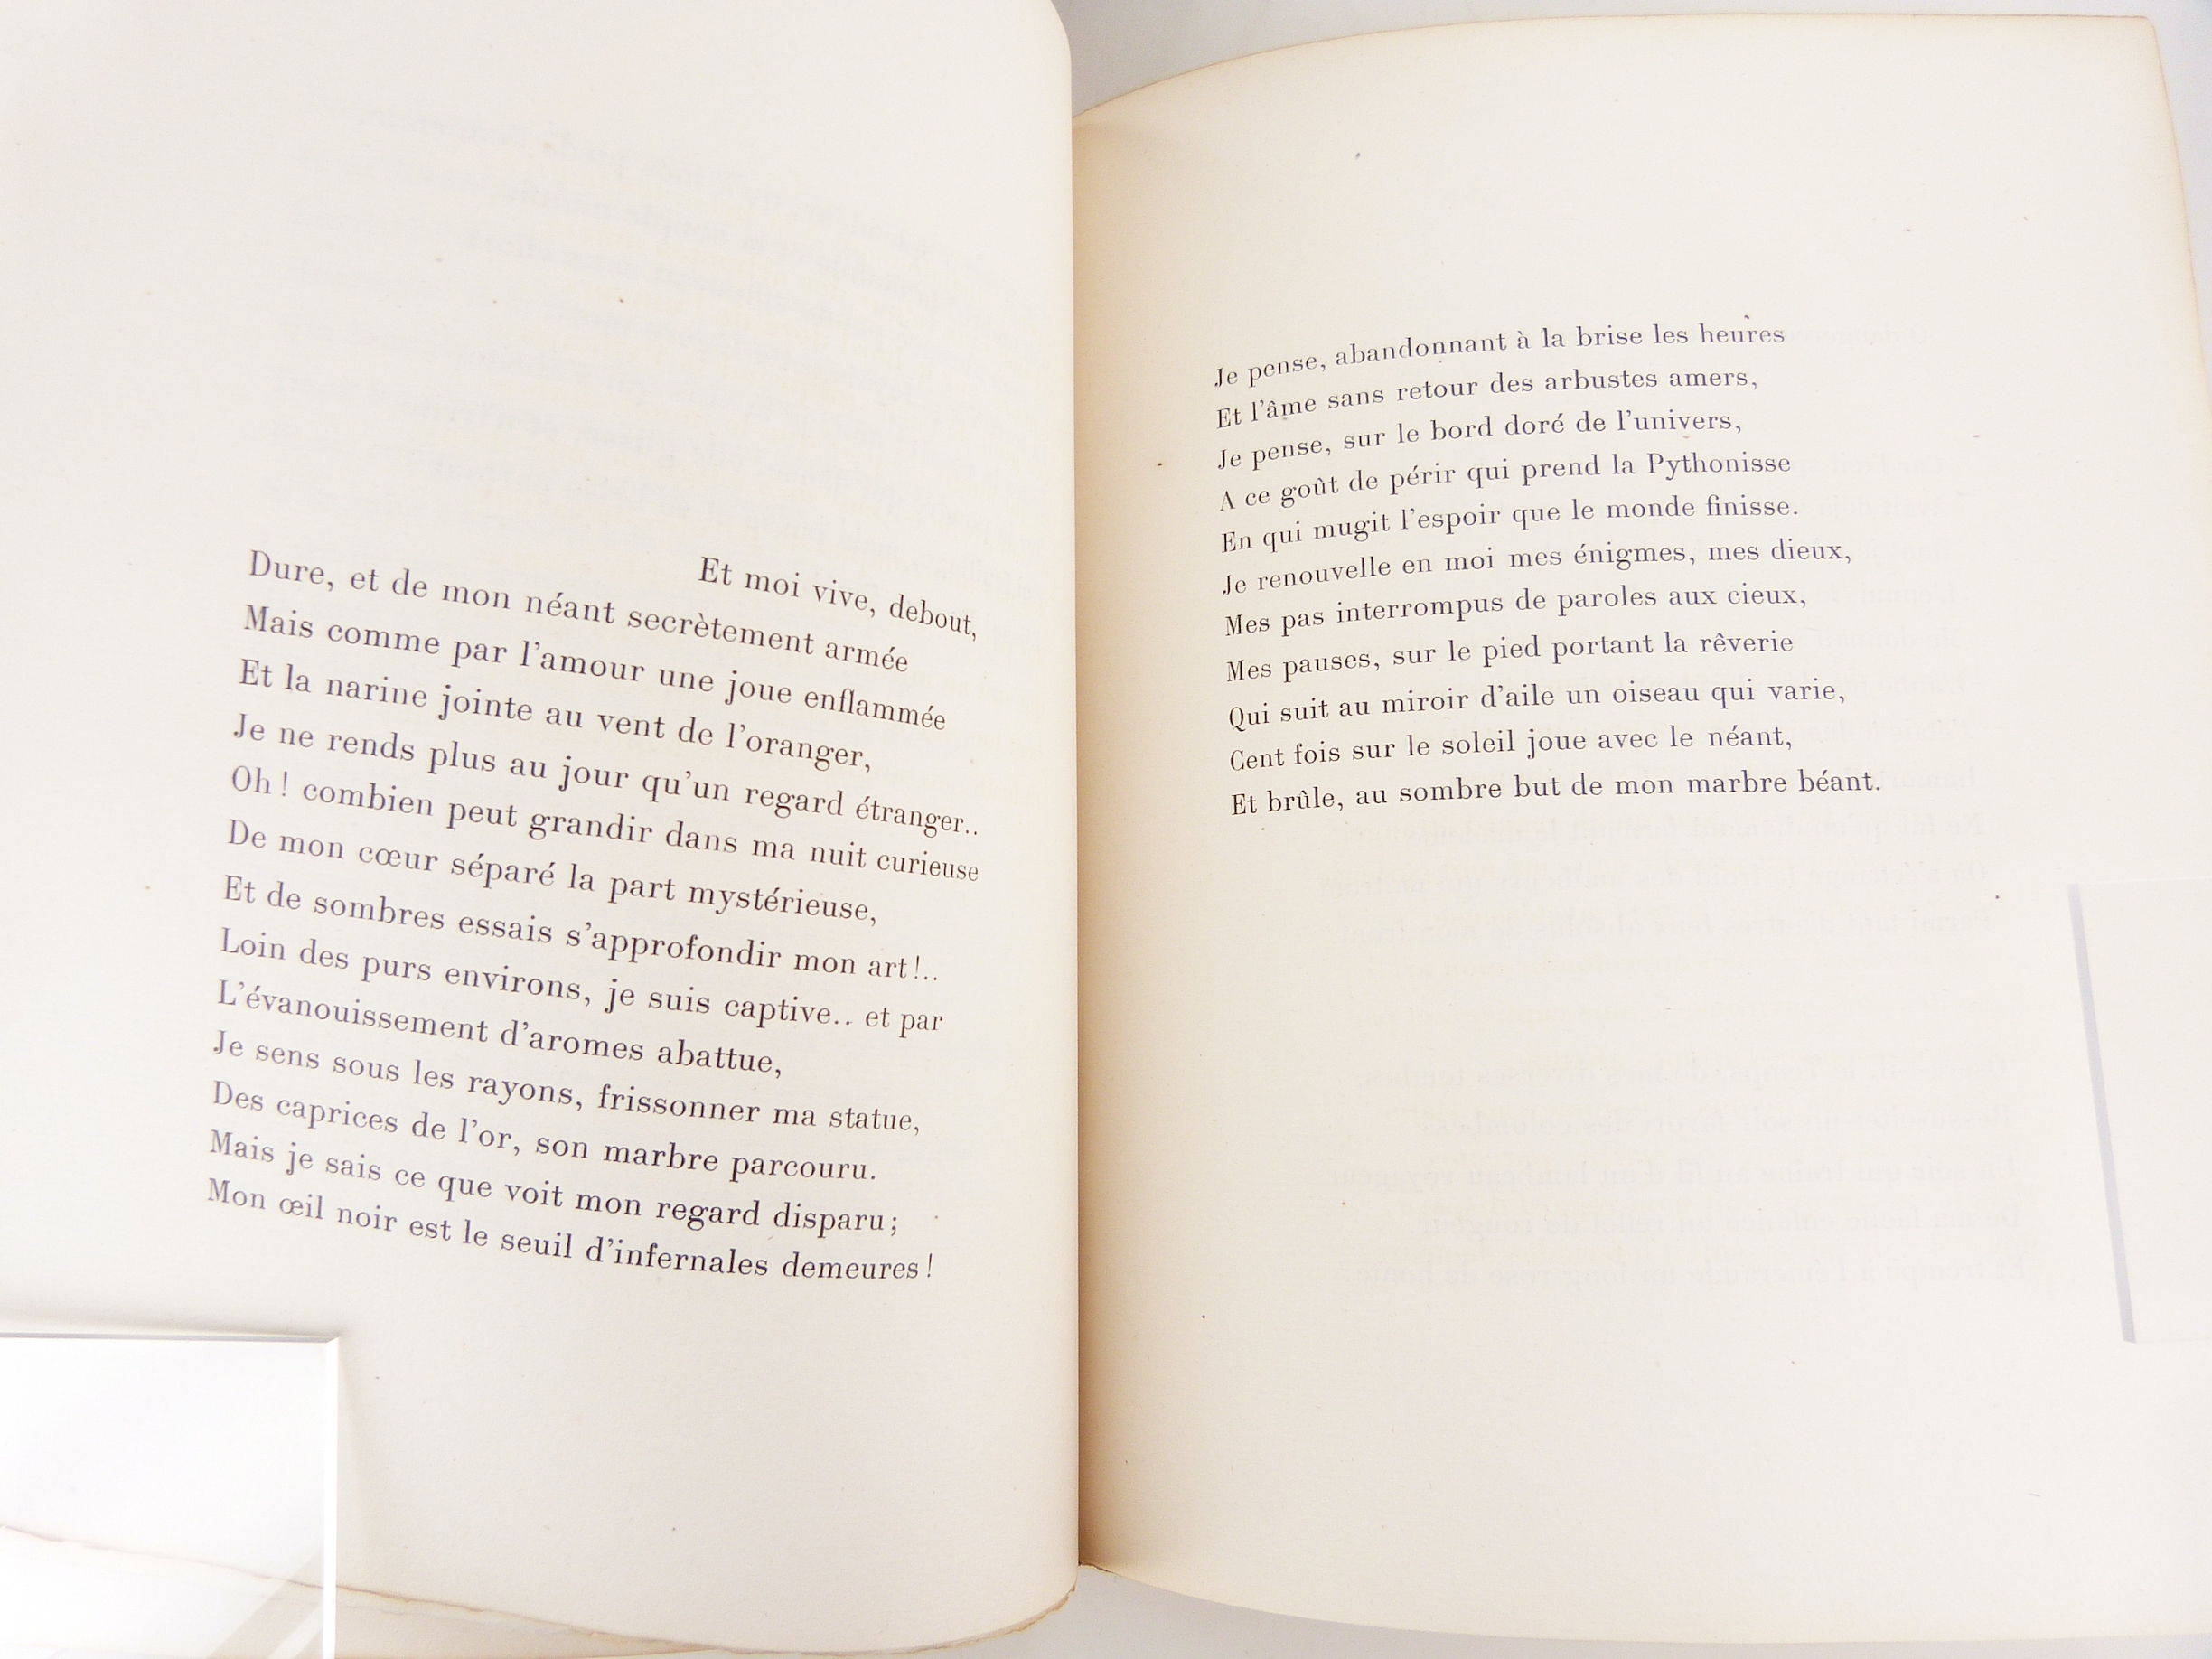 Et moi vive, debout,
Dure, et de mon néant secrètement armée
Mais comme par l'amour une joue enflammée
Et la narine jointe au vent de l'oranger,
Je ne rends plus au jour qu'un regard étranger..
Oh ! combien peut grandir dans ma nuit curieuse
De mon cœur séparé la part mystérieuse,
Et de sombres essais s'approfondir mon art !..
Loin des purs environs, je suis captive.. et par
L'évanouissement d'aromes abattue,
Je sens sous les rayons, frissonner ma statue,
Des caprices de l'or, son marbre parcouru.
Mais je sais ce que voit mon regard disparu ;
Mon œil noir est le seuil d'infernales demeures !
Je pense, abandonnant à la brise les heures
Et l'âme sans retour des arbustes amers,
Je pense, sur le bord doré de l'univers,
A ce goût de périr qui prend la Pythonisse
En qui mugit l'espoir que le monde finisse.
Je renouvelle en moi mes énigmes, mes dieux,
Mes pas interrompus de paroles aux cieux,
Mes pauses, sur le pied portant la rêverie
Qui suit au miroir d'aile un oiseau qui varie,
Cent fois sur le soleil joue avec le néant,
Et brûle, au sombre but de mon marbre béant.